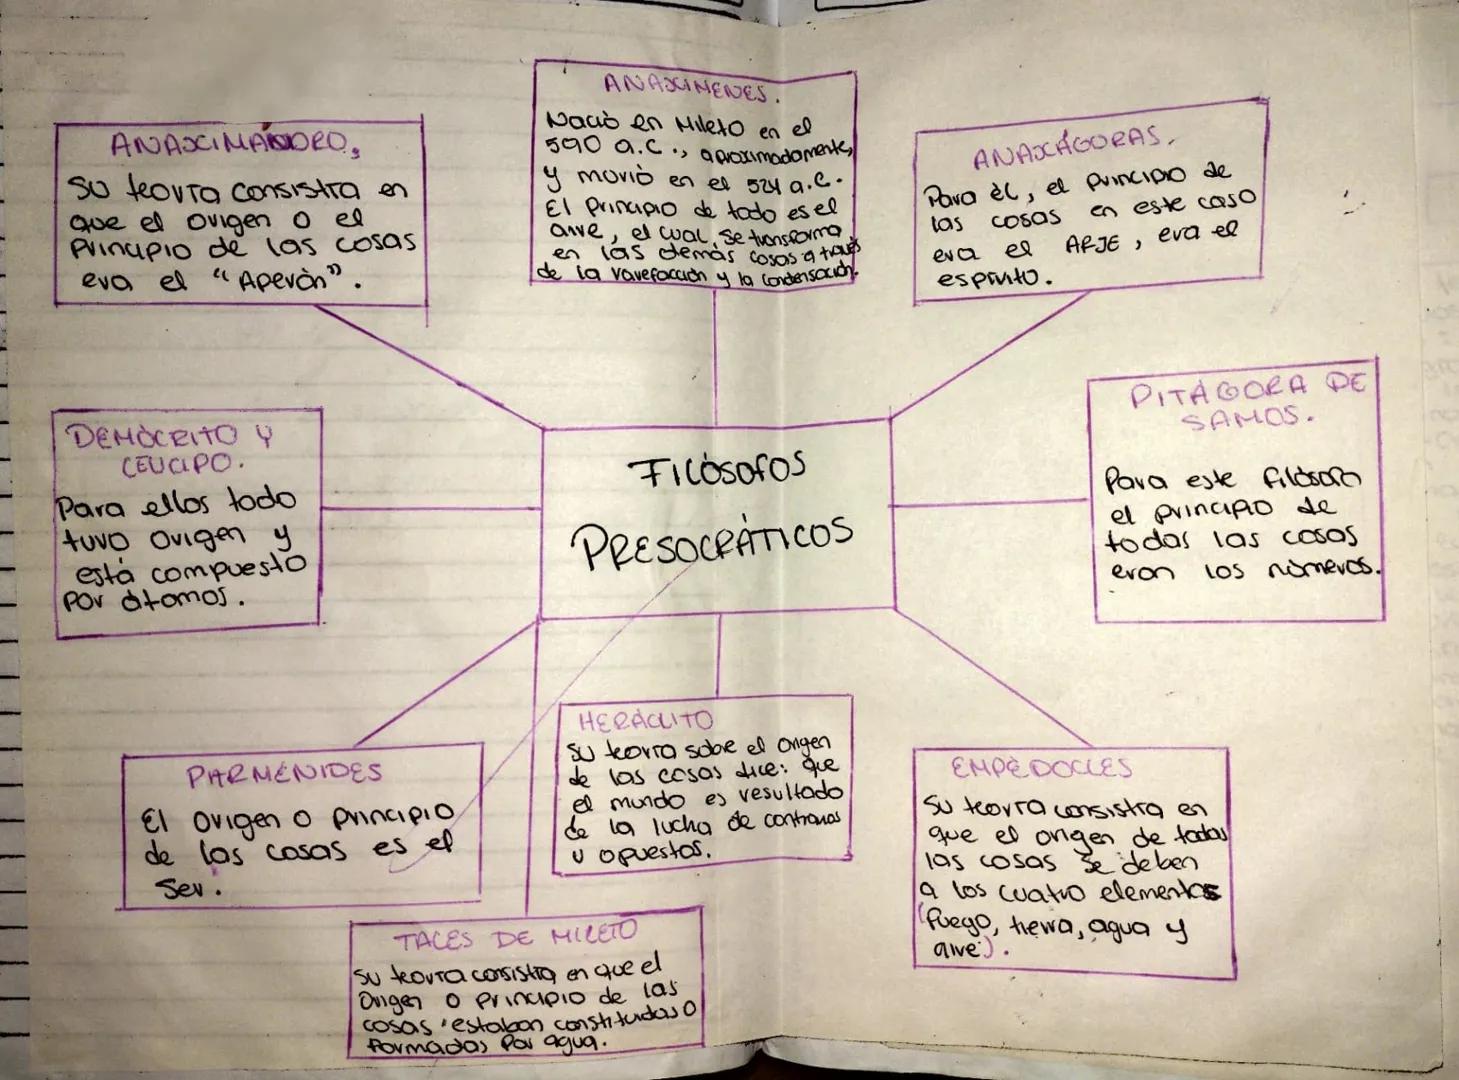 ANAXIMANDRO.
Su teoría consistía en
que el origen o el
principio de las cosas
era el "Aperón".
ANAXIMENES.
Nació en Mileto en el
590 a.C., aproximadamente,
y murió en el 524 a.C.
El principio de todo es el
aire, el cual, se transforma
en las demás cosas a través
de la rarefacción y la condensación.
ANAXÁGORAS.
Para él, el principio de
las cosas en este caso
era el ARJE, era el
espíritu.
DEMÓCRITO Y
LEUCIPO.
Para ellos todo
tuvo origen y
está compuesto
por átomos.
FILÓSOFOS
PRESOCRÁTICOS
PITÁGORA DE
SAMOS.
Para este filósofo
el principio de
todas las cosas
eran los números.
PARMÉNIDES
El origen o principio
de las cosas es el
Ser.
HERÁCLITO
Su teoría sobre el origen
de las cosas dice: que
el mundo es resultado
de la lucha de contrarios
u opuestos.
EMPÉDOCLES
Su teoría consistía en
que el origen de todas
las cosas se deben
a los cuatro elementos
(fuego, tierra, agua y
aire).
TALES DE MILETO
Su teoría consistía en que el
Origen o principio de las
cosas estaban constituidas o
formadas por agua.